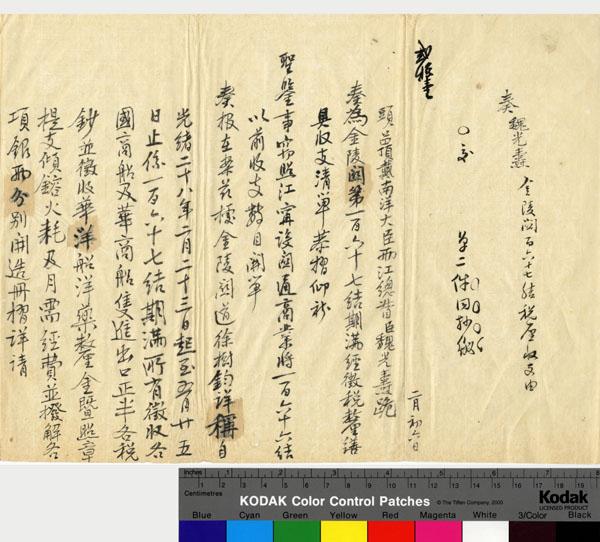 奏 魏光燾 金陵關百六十七結稅厘收支由
第二件因抄
二月初六日
頭品頂戴南洋大臣兩江總督臣魏光燾跪
奏為金陵關第一百六十七結期滿經徵稅釐繕
具收支清單恭摺仰祈
聖鑒事竊照江甯設關通商業將一百六十六結
以前收支數目開單
奏报在案茲據金陵關道徐樹鈞詳稱自
光緒二十八年二月二十三日起至五月廿五
日止係一百六十七結期滿所有徵收各
國商船及華商船隻進出口正半各稅
鈔並徵收華洋船洋藥釐金暨照章
提支傾鎔火耗及月需經費並撥解各
項銀兩分別開造冊摺詳請
Inches 1 2 3 4 5 6 7 8
Centimetres 1 2 3 4 5 6 7 8 9 10 11 12 13 14 15 16 17 18 19
KODAK Color Control Patches © The Tiffen Company, 2000 Kodak
LICENSED PRODUCT
Blue Cyan Green Yellow Red Magenta White 3/Color Black